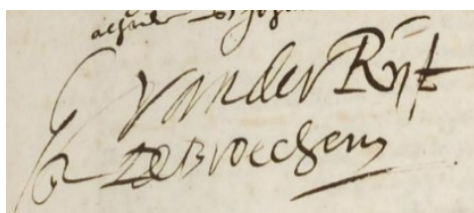 VanderRijt
De Broechem